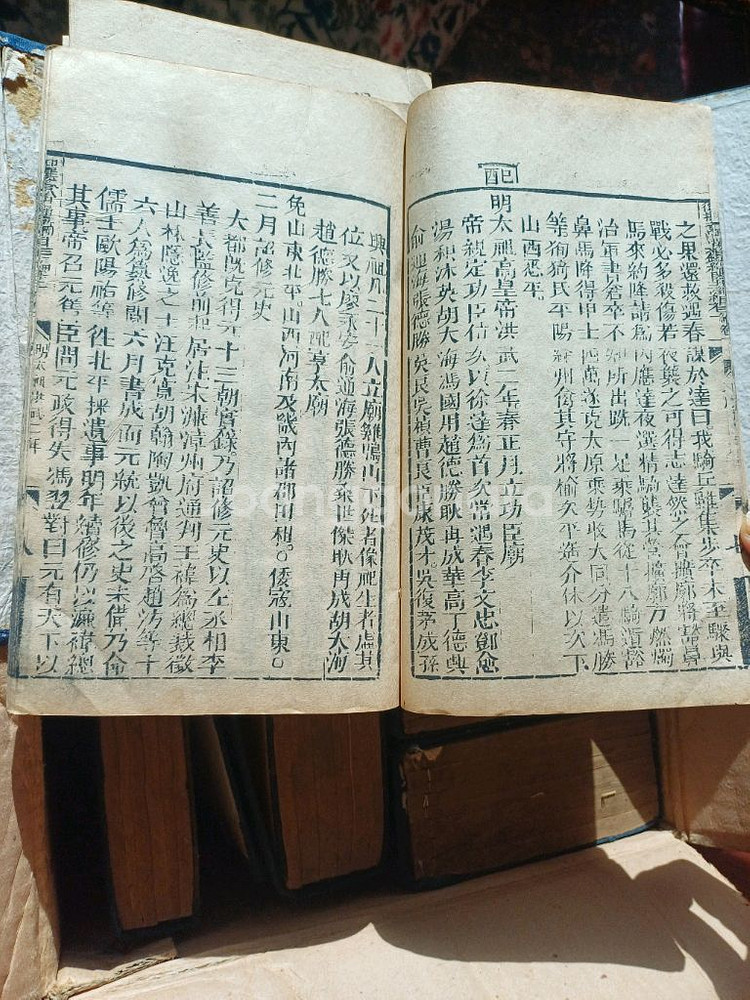 己酉
之果還救遇春謀於達曰我騎兵雖集步卒未至驟與
戰必多殺傷若夜襲之可得志達然之會擴廓將豁鼻
馬來約降請爲內應達夜選精騎襲其營擴廓方燃燭
治軍書倉卒不知所出跣一足乘驏馬從十八騎遁豁
鼻馬降得甲士四萬遂克太原乘勢收大同分遣馮勝
等徇猗氏平陽絳州擒其守將榆次平遙介休以次下
山西悉平
明太祖高皇帝洪武二年春正月立功臣廟
帝親定功臣位次以徐達爲首次常遇春李文忠鄧愈
湯和沐英胡大海馮國用趙德勝耿再成華高丁德興
俞通海張德勝吳良吳禎曹良臣康茂才吳復茅成孫
興祖凡二十一人立廟雞鳴山下死者像祀生者虛其
位又以廖永安俞通海張德勝桑世傑耿再成胡大海
趙德勝七人配享太廟
免山東北平。山西河南及畿內諸郡田租。○倭寇山東。○
二月詔修元史
大都既克得元十三朝實錄乃詔修元史以左丞相李
善長監修前起居注宋濂漳州府通判王褘爲總裁徵
山林隱逸之士汪克寬胡翰陶凱曾魯高啓趙汸等十
六人爲纂修閱六月書成而元統以後之史未備乃命
儒士歐陽祐等往北平採遺事明年續修仍以濂褘總
其事帝召元舊臣問元政得失馮翼對曰元有天下以
明太祖洪武二年